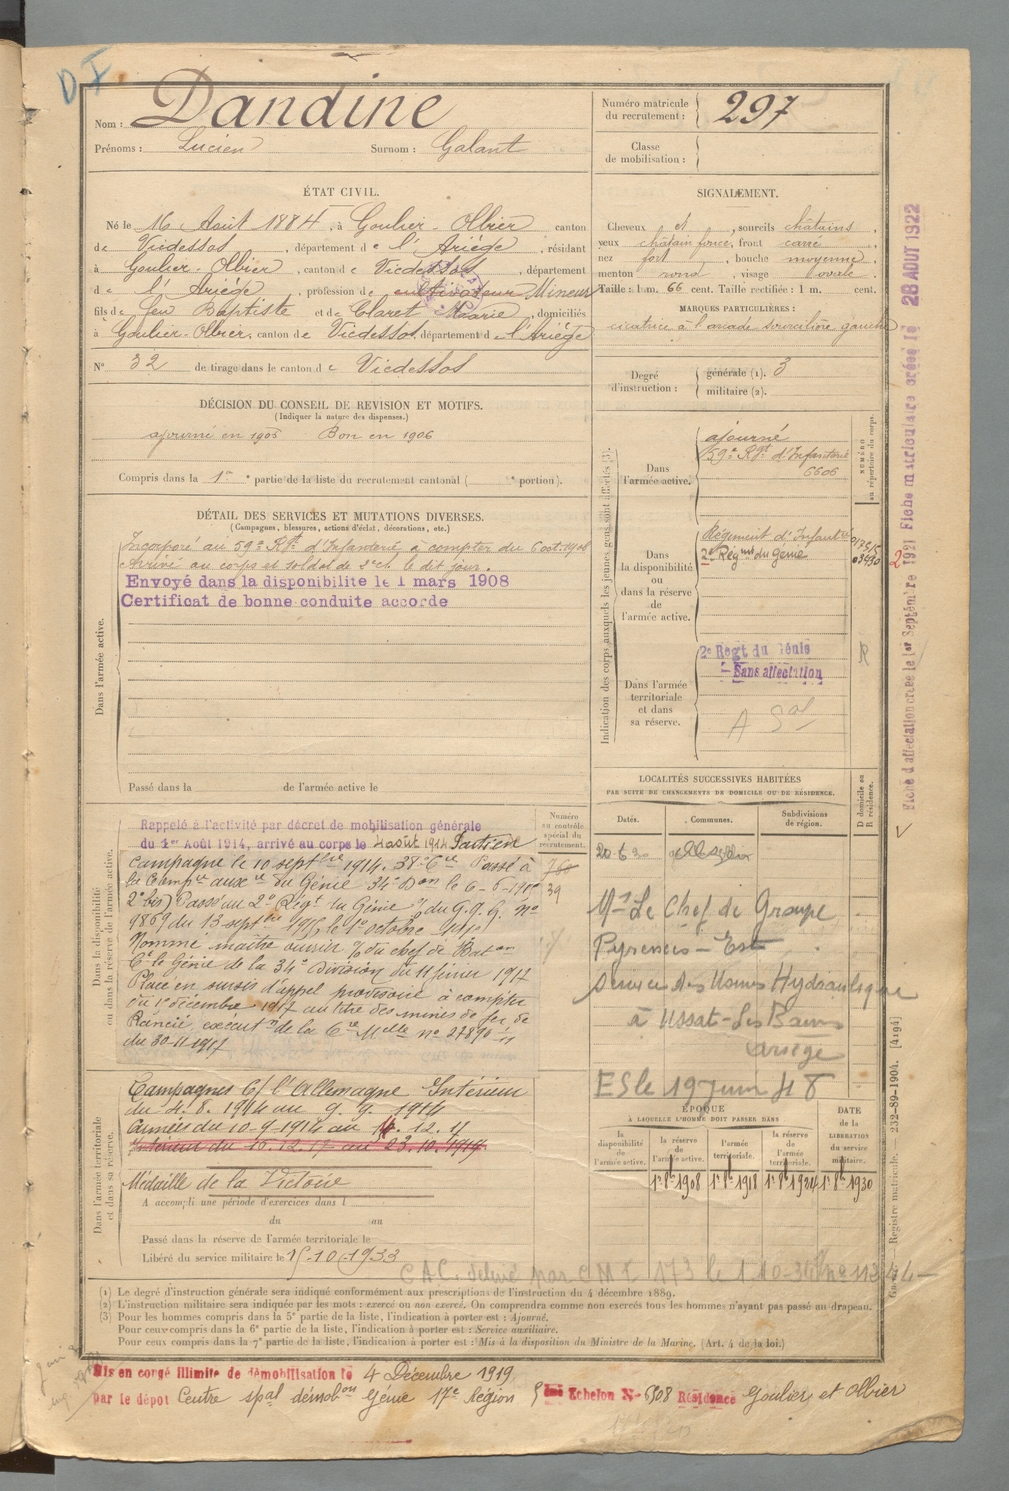 D I
Nom : Dandine
Prénoms : Lucien Surnom : Galant
Numéro matricule
du recrutement : 297
Classe
de mobilisation :
ÉTAT CIVIL.
Né le 16 Août 1884, à Goulier-Olbier canton
de Vicdessos, département de l'Ariège, résidant
à Goulier-Olbier, canton de Vicdessos, département
de l'Ariège, profession de cultivateur Mineur
fils de feu Baptiste et de Claret Marie, domiciliés
à Goulier-Olbier, canton de Vicdessos, département de l'Ariège
N° 32 de tirage dans le canton de Vicdessos
SIGNALEMENT.
Cheveux et, sourcils châtains,
yeux châtain foncé, front carré,
nez fort, bouche moyenne,
menton rond, visage ovale.
Taille : 1 m. 66 cent. Taille rectifiée : 1 m. cent.
MARQUES PARTICULIÈRES :
cicatrice à l'arcade sourcilière gauche
Degré
d'instruction :
générale (1). 3
militaire (2).
DÉCISION DU CONSEIL DE REVISION ET MOTIFS.
(Indiquer la nature des dispenses.)
ajourné en 1905 Bon en 1906
Compris dans la 1re partie de la liste du recrutement cantonal ( e portion).
DÉTAIL DES SERVICES ET MUTATIONS DIVERSES.
(Campagnes, blessures, actions d'éclat, décorations, etc.)
Dans l'armée active.
Incorporé au 59e Rgt d'Infanterie à compter du 6 oct. 1906
Arrivé au corps et soldat de 2e cl. le dit jour.
Envoyé dans la disponibilité le 1 mars 1908
Certificat de bonne conduite accordé
Passé dans la de l'armée active le
Indication des corps auxquels les jeunes gens sont affectés (3).
Dans
l'armée active.
ajourné
59e Rgt d'Infanterie
6606
NUMÉRO
au répertoire du corps.
Dans
la disponibilité
ou
dans la réserve
de
l'armée active.
Régiment d'Infanterie
2e Régiment du Génie
03930
Dans l'armée
territoriale
et dans
sa réserve.
2e Regt du Génie
Sans affectation
R
LOCALITÉS SUCCESSIVES HABITÉES
PAR SUITE DE CHANGEMENTS DE DOMICILE OU DE RÉSIDENCE.
Dates. Communes. Subdivisions
de région.
D domicile ou
R résidence.
Mr Le Chef de Groupe
Pyrénées-Est
Service des Usines Hydraulique
à Ussat-Les Bains
Ariège
ES le 19 juin 48
Dans la disponibilité
ou dans la réserve de l'armée active.
Numéro
au contrôle
spécial du
recrutement.
39
Rappelé à l'activité par décret de mobilisation générale
du 1er Août 1914, arrivé au corps le 4 août 1914 Parti en
campagne le 10 septbre 1914. Passé à
la Compie auxre du Génie 34e Don le 6-6-1915
Passé au 2e Régt du Génie du G.Q.G. no
9869 du 13 septbre 1915 le 1er octobre 1915
Nommé maître ouvrier du chef de Bat on
Ct le Génie de la 34e Division du 11 février 1917
Placé en sursis d'appel provisoire à compter
du 1er décembre 1917 au titre des mines de fer de
Rancié, exécution de la Cre Mlle no 27890
du 30-11-1917
Dans l'armée territoriale
et dans sa réserve.
Campagnes C/ l'Allemagne Intérieur
du 4.8.1914 au 9.9.1914
Armées du 10-9-1914 au 14.12.17
Intérieur du 15.12.17 au 23.10.1919
Médaille de la Victoire
A accompli une période d'exercices dans l
du au
Passé dans la réserve de l'armée territoriale le
Libéré du service militaire le 15-10-1933
ÉPOQUE
À LAQUELLE L'HOMME DOIT PASSER DANS
la
disponibilité
de
l'armée active.
la réserve
de
l'armée active.
l'armée
territoriale.
la réserve
de
l'armée
territoriale.
DATE
de la
LIBÉRATION
du service
militaire.
1er 8bre 1908 1er 8bre 1918 1er 8bre 1924 1er 8bre 1930
(1) Le degré d'instruction générale sera indiqué conformément aux prescriptions de l'instruction du 4 décembre 1889.
(2) L'instruction militaire sera indiquée par les mots : exercé ou non exercé. On comprendra comme non exercés tous les hommes n'ayant pas passé au drapeau.
(3) Pour les hommes compris dans la 5e partie de la liste, l'indication à porter est : Ajourné.
Pour ceux compris dans la 6e partie de la liste, l'indication à porter est : Service auxiliaire.
Pour ceux compris dans la 7e partie de la liste, l'indication à porter est : Mis à la disposition du Ministre de la Marine. (Art. 4 de la loi.)
Mis en congé illimité de démobilisation le 4 Décembre 1919
par le dépôt Centre spal démobon Génie 17e Région Echelon No Résidence Goulier et Olbier
Fiche d'affectation créée le 1er Septembre 1921 Fiche matriculaire créée le 28 AOUT 1922
Registre matricule. 232-89-1904. [4194]